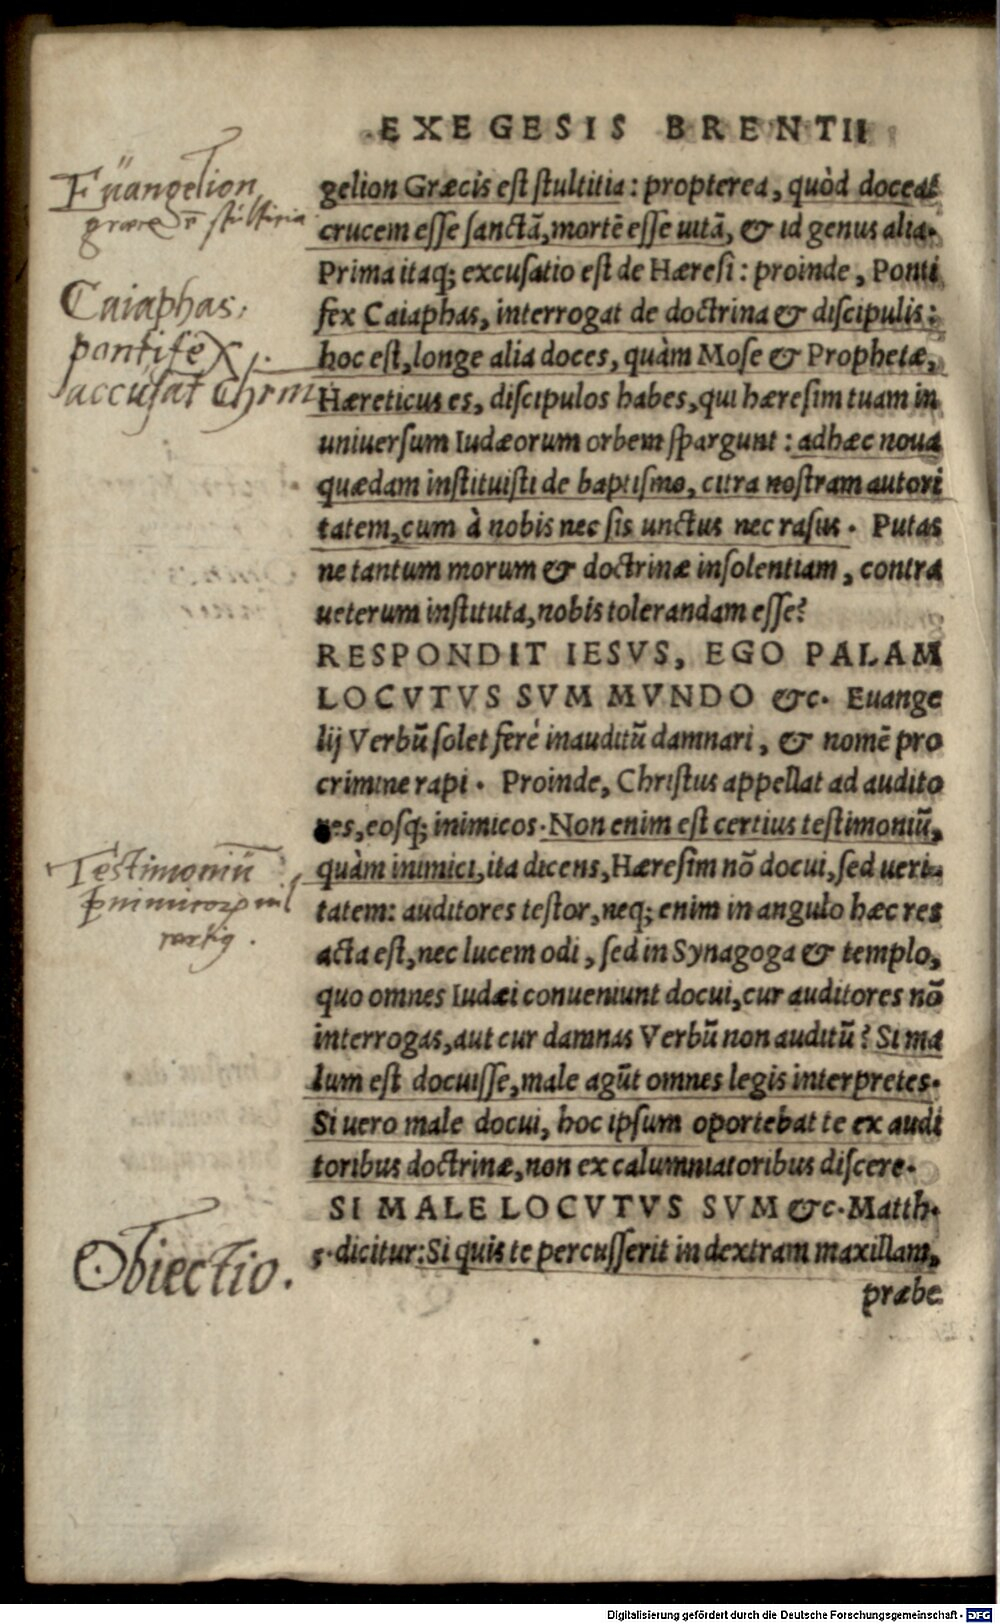 EXEGESIS BRENTII
gelion Græcis est stultitia: propterea, quòd doceat
crucem esse sanctā, mortē esse uitā, & id genus alia.
Prima itaq; excusatio est de Hæresi: proinde, Ponti
fex Caiaphas, interrogat de doctrina & discipulis:
hoc est, longe alia doces, quàm Mose & Prophetæ,
Hæreticus es, discipulos habes, qui hæresim tuam in
uniuersum Iudæorum orbem spargunt: adhæc noua
quædam instituisti de baptismo, citra nostram autori
tatem, cum à nobis nec sis unctus nec rasus. Putas
ne tantum morum & doctrinæ insolentiam, contra
ueterum instituta, nobis tolerandam esse?
RESPONDIT IESVS, EGO PALAM
LOCVTVS SVM MVNDO &c. Euange
lij Verbū solet ferè inauditū damnari, & nomē pro
crimine rapi. Proinde, Christus appellat ad audito
res, eosq; inimicos. Non enim est certius testimoniū,
quàm inimici, ita dicens, Hæresim nō docui, sed ueri-
tatem: auditores testor, neq; enim in angulo hæc res
acta est, nec lucem odi, sed in Synagoga & templo,
quo omnes Iudæi conueniunt docui, cur auditores nō
interrogas, aut cur damnas Verbū non auditū? Si ma
lum est docuisse, male agūt omnes legis interpretes.
Si uero male docui, hoc ipsum oportebat te ex audi
toribus doctrinæ, non ex calumniatoribus discere.
SI MALE LOCVTVS SVM &c. Matth.
5. dicitur: Si quis te percusserit in dextram maxillam,
præbe
Euangelion
stultitia
Caiaphas
pontifex
accusat Chrm
Testimoniū
Obiectio.
Digitalisierung gefördert durch die Deutsche Forschungsgemeinschaft - DFG